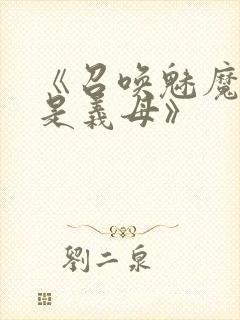 《召唤魅魔
是义母》
劉二泉